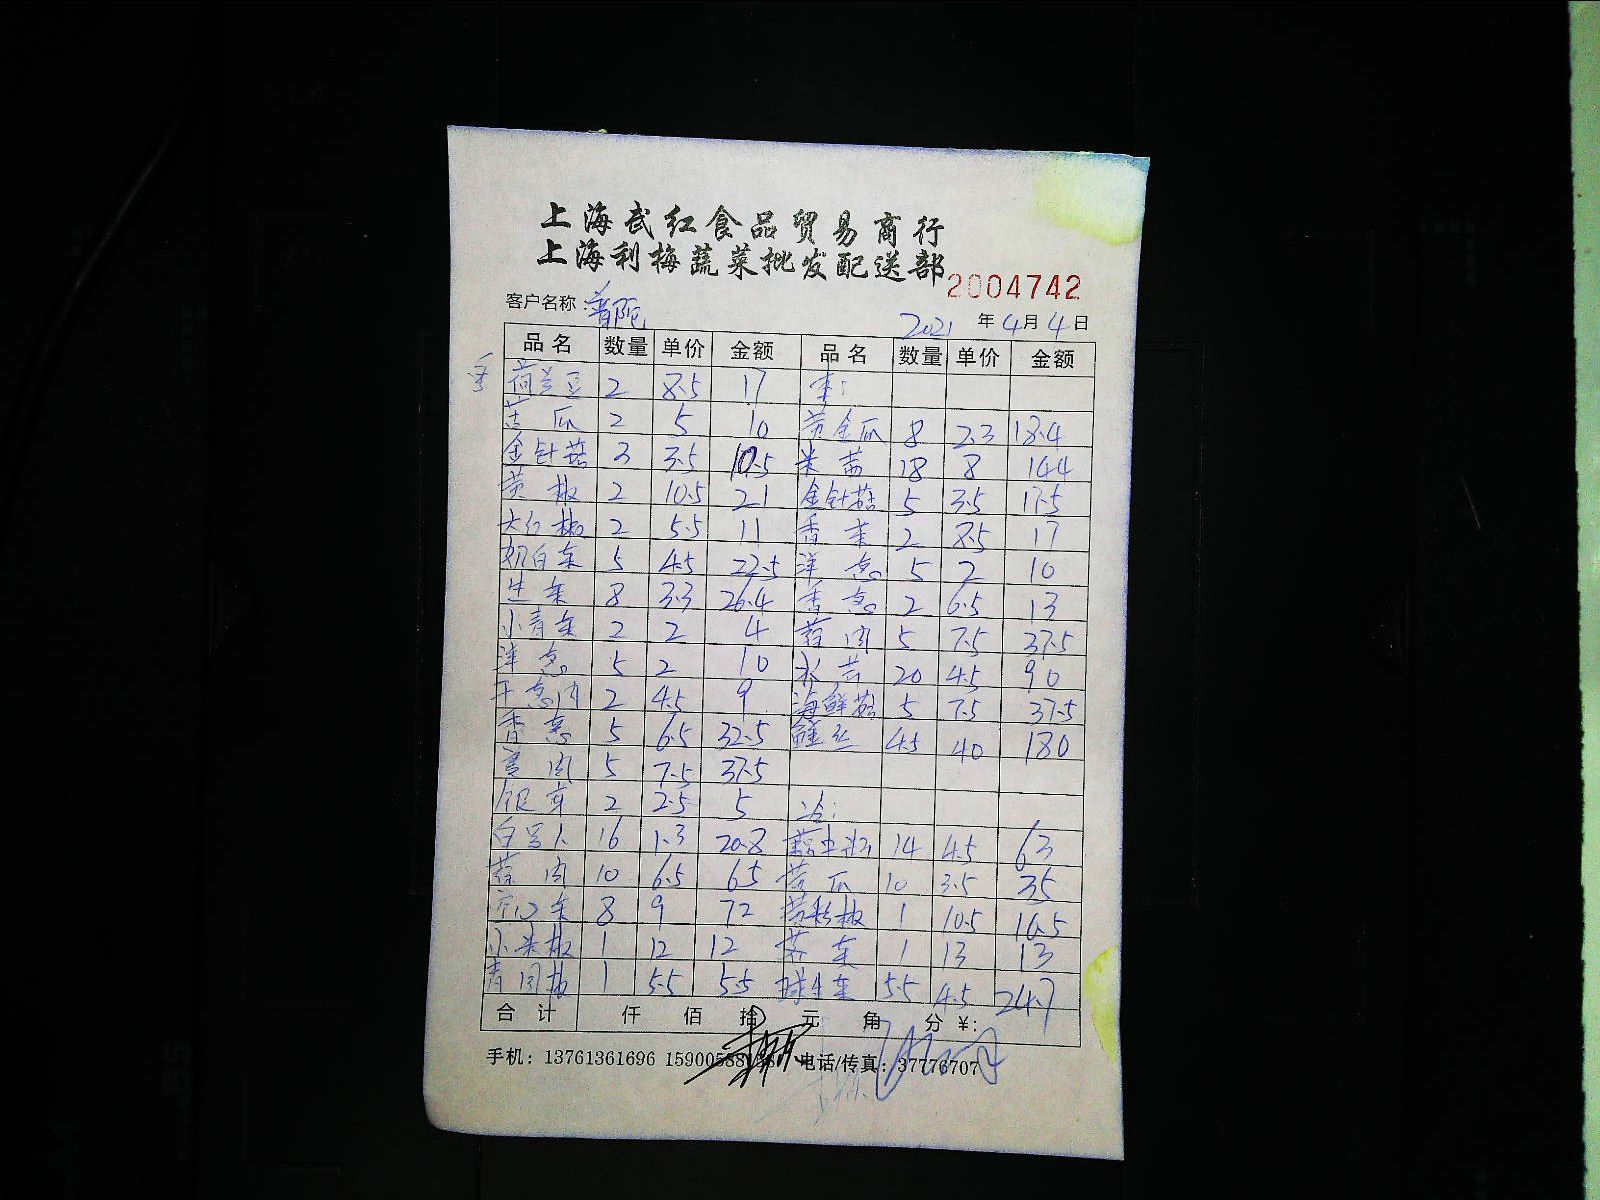 上海武红食品贸易商行
上海利梅蔬菜批发配送部
2004742
客户名称：普陀
2021 年 4 月 4 日
品名 数量 单价 金额 品名 数量 单价 金额
荷兰豆 2 8.5 17
苦瓜 2 5 10 黄金瓜 8 2.3 18.4
金针菇 3 3.5 10.5 米苋 18 8 144
黄椒 2 10.5 21 金针菇 5 3.5 17.5
大红椒 2 5.5 11 香菜 2 8.5 17
奶白菜 5 4.5 22.5 洋葱 5 2 10
生菜 8 3.3 26.4 香葱 2 6.5 13
小青菜 2 2 4 蒜肉 5 7.5 37.5
洋葱 5 2 10 20 4.5 90
干葱肉 2 4.5 9 海鲜菇 5 7.5 37.5
香葱 5 6.5 32.5 丝 4.5 40 180
肉 5 7.5 37.5
银芽 2 2.5 5
白 16 1.3 20.8 14 4.5 63
蒜肉 10 6.5 65 苦瓜 10 3.5 35
空心菜 8 9 72 椒 1 10.5 10.5
小米椒 1 12 12 荠菜 1 13 13
青圆椒 1 5.5 5.5 球生菜 5.5 4.5 24.7
合计 仟 佰 拾 元 角 分 ¥:
手机：13761361696 电话/传真：37776707